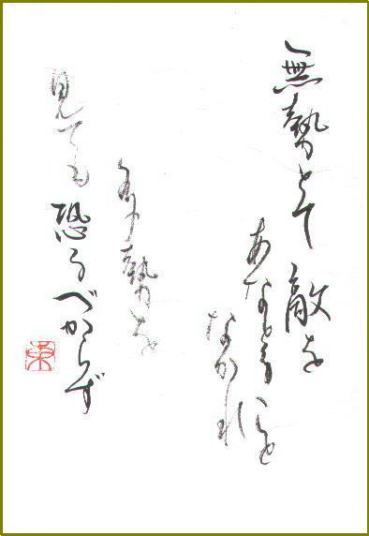 無勢とて敵を
あなどること
なかれ
多勢を
見ても恐るべからず